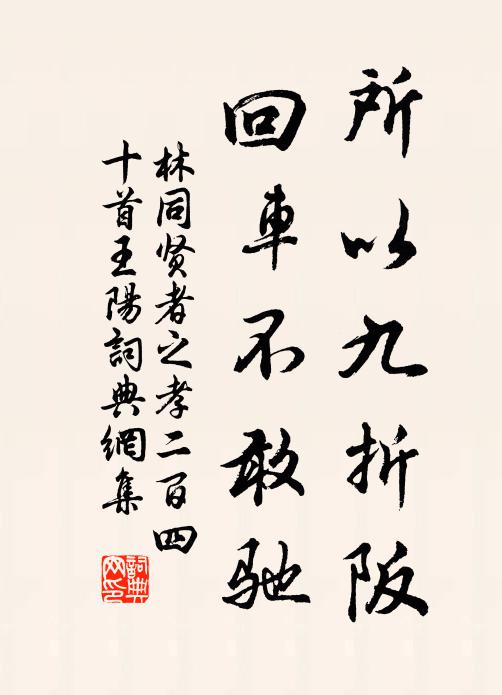 所以九折阪
回車不敢驰
林同贤者之孝二百四
十首王陽詞典網集
詞典网印